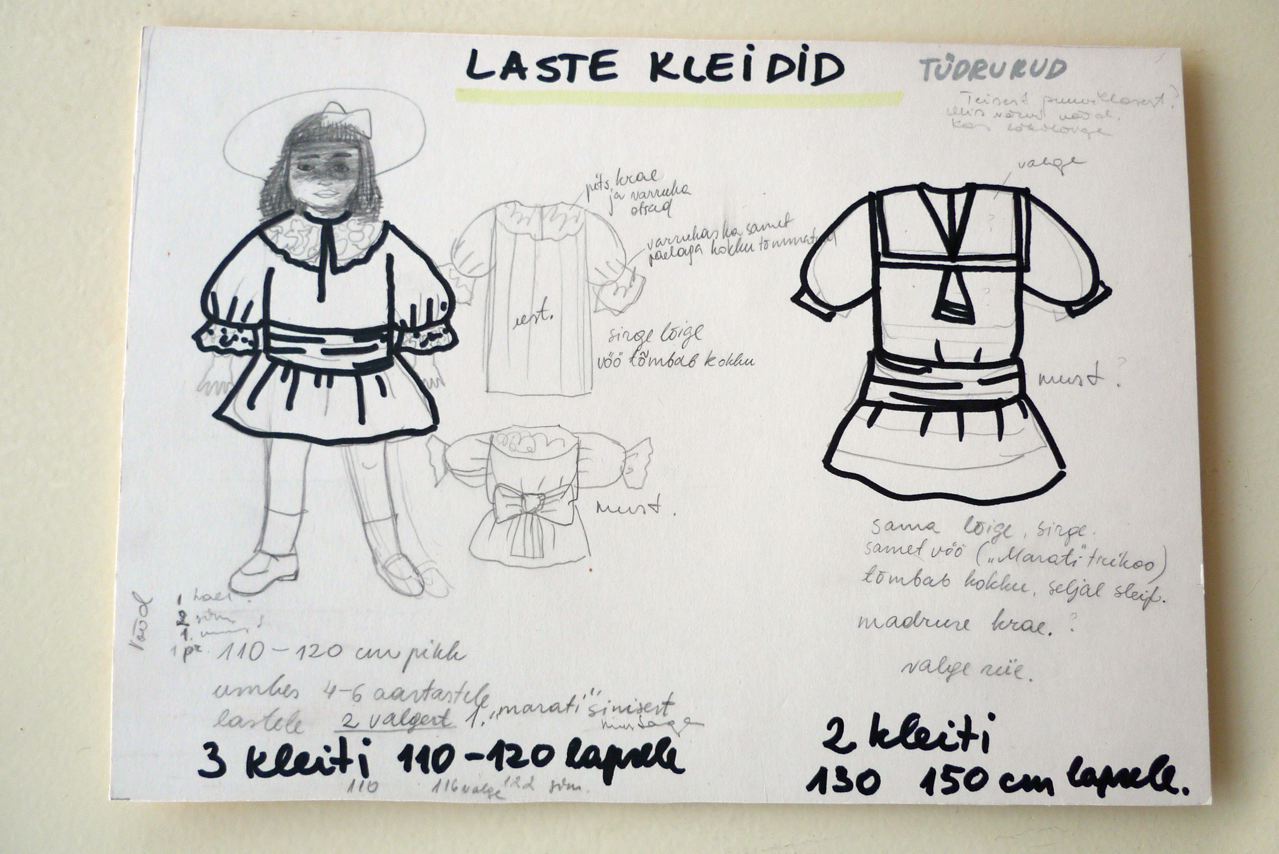 LASTE KLEIDID
TÜDRUKUD
Teisest puuvillasest?
valge
pits krae
ja varruka
otsad
varrukas ka samet
paelaga kokku tõmmatud
eest.
sirge lõige
vöö tõmbab kokku
must.
must?
sama lõige, sirge.
samet vöö ("Marati" trikoo)
tõmbab kokku, seljal sleif.
madruse krae.?
valge riie.
vööd
1
2 sin
1.
1 pr.
110-120 cm pikk
umbes 4-6 aastastele
lastele 2 valgest 1. "marati" sinisest
mustaga
3 kleiti 110-120 lapsele
110 116 valge 122 sin.
2 kleiti
130 150 cm lapsele.